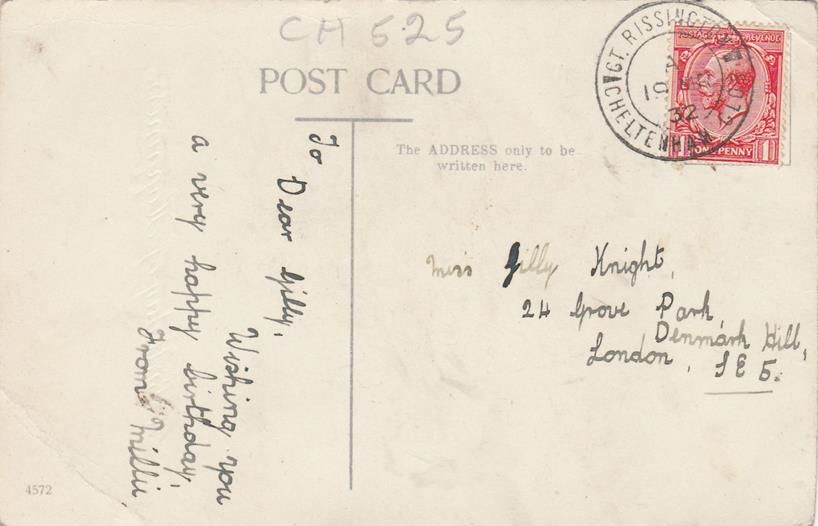 CH 525
POST CARD
The ADDRESS only to be
written here.
To Dear Gilly,
Wishing you
a very happy birthday,
From Millie
Miss Gilly Knight,
24 Grove Park,
Denmark Hill,
London, SE 5.
GT. RISSINGTON
CHELTENHAM
A
19
32
POSTAGE REVENUE
ONE PENNY 1
4572